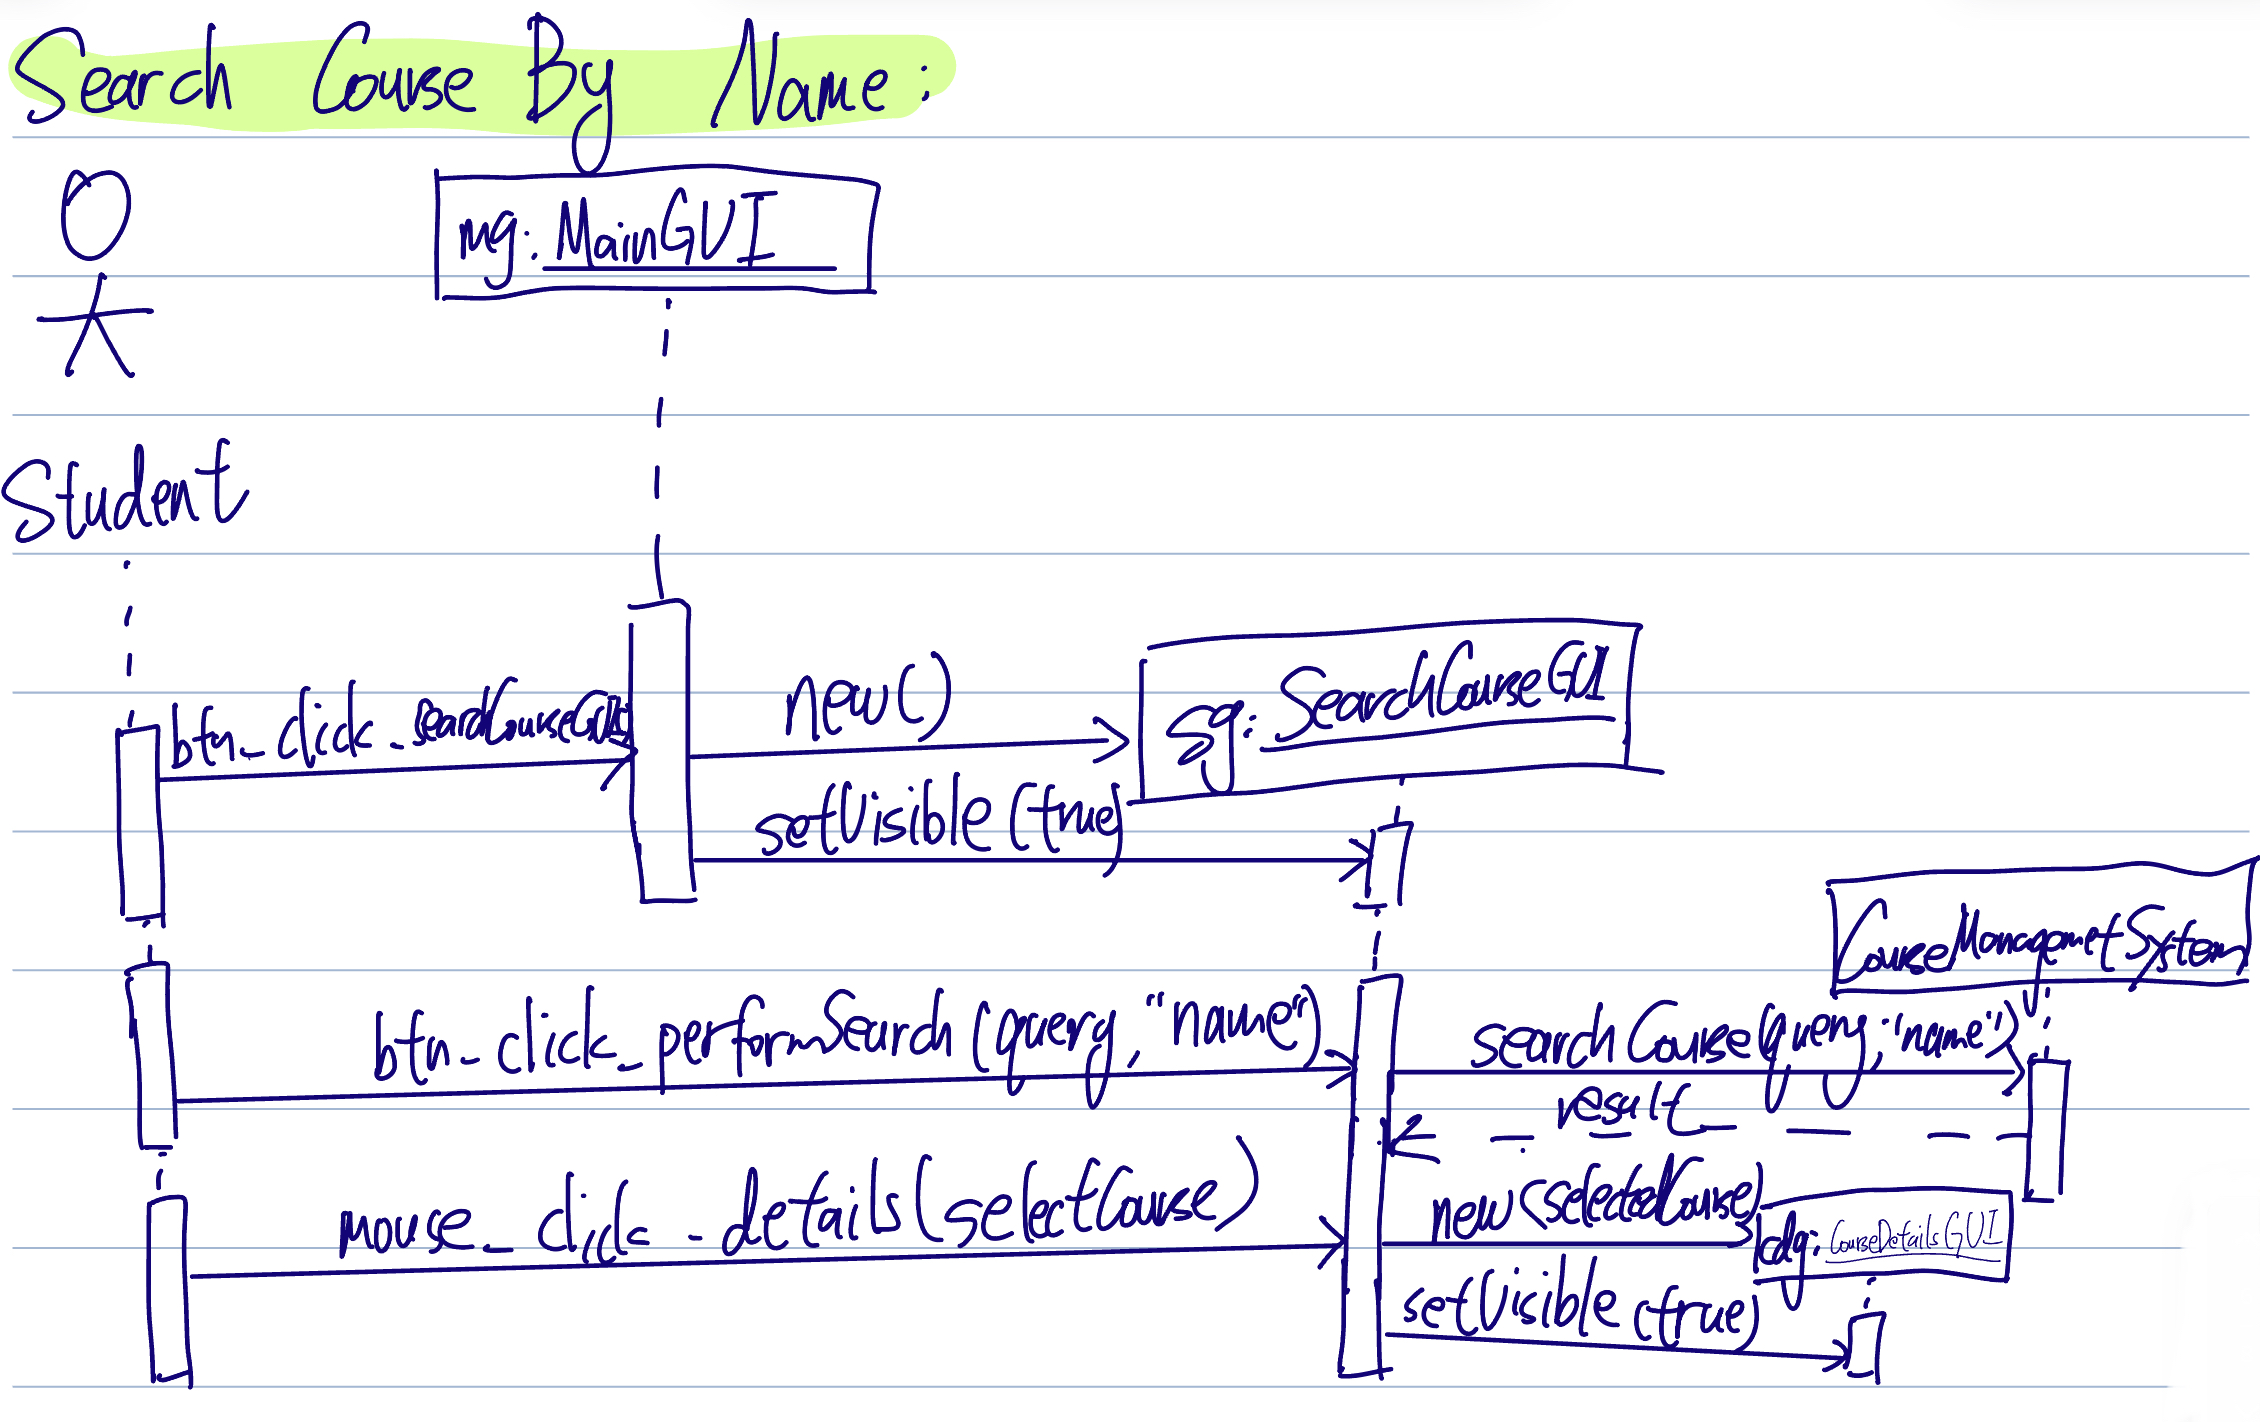 Search Course By Name:
mg: MainGUI
Student
btn_click_searchCourseGUI()
new()
sg: SearchCourseGUI
setVisible(true)
CourseManagemetSystem
btn_click_performSearch(query, "name")
searchCourse(query, "name")
result
mouse_click_details(selectCourse)
new(selectedCourse)
cdg: CourseDetailsGUI
setVisible(true)